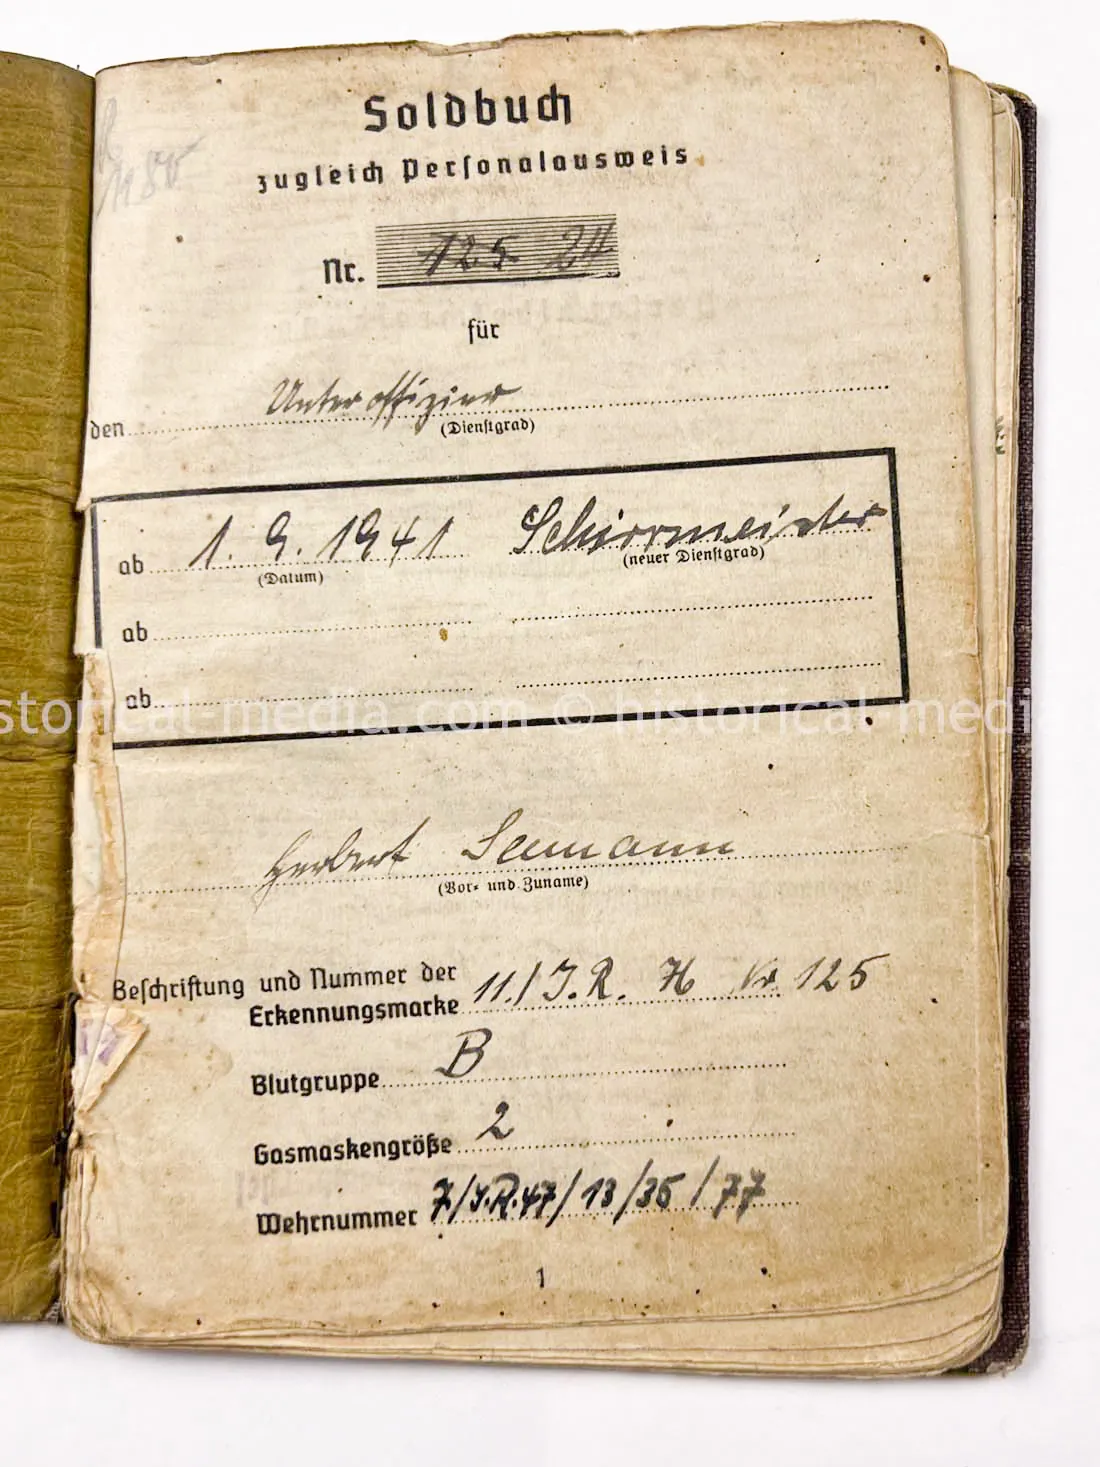 Soldbuch
zugleich Personalausweis
Nr. 125 24
für
den Unteroffizier
(Dienstgrad)
ab 1. 9. 1941 Schirrmeister
(Datum) (neuer Dienstgrad)
ab
ab
historical-media.com © historical-media
Herbert Seemann
(Vor- und Zuname)
Beschriftung und Nummer der
Erkennungsmarke 11./J.R. Nr 125
Blutgruppe B
Gasmaskengröße 2
Wehrnummer 7/J.R.47/13/35/77
1